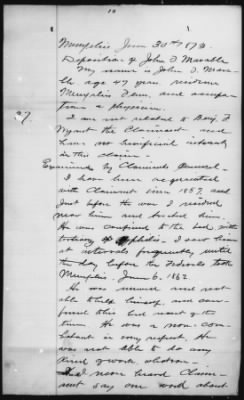 10
Memphis June 30th 1873.
Deposition of John T. Marable
My name is John T. Mara-
ble age 47 years residence
Memphis Tenn. and occupa-
tion a physician.
27.
I am not related to Benj. F.
the Claimant and
have no beneficial interest
in this claim.
Examined by Claimants Counsel.
I have been acquainted
with Claimant since 1857 and
just before the war I resided
near him and
He was confined to the bed with
I saw him
at intervals frequently until
the day before the Federals took
Memphis. June 6. 1862
He was unwell and not
able to help himself and con-
fined to his bed most of the
time. He was a non-com-
batant in every respect. He
was not able to do any
kind of work whatever.
I never heard Claim-
ant say one word about